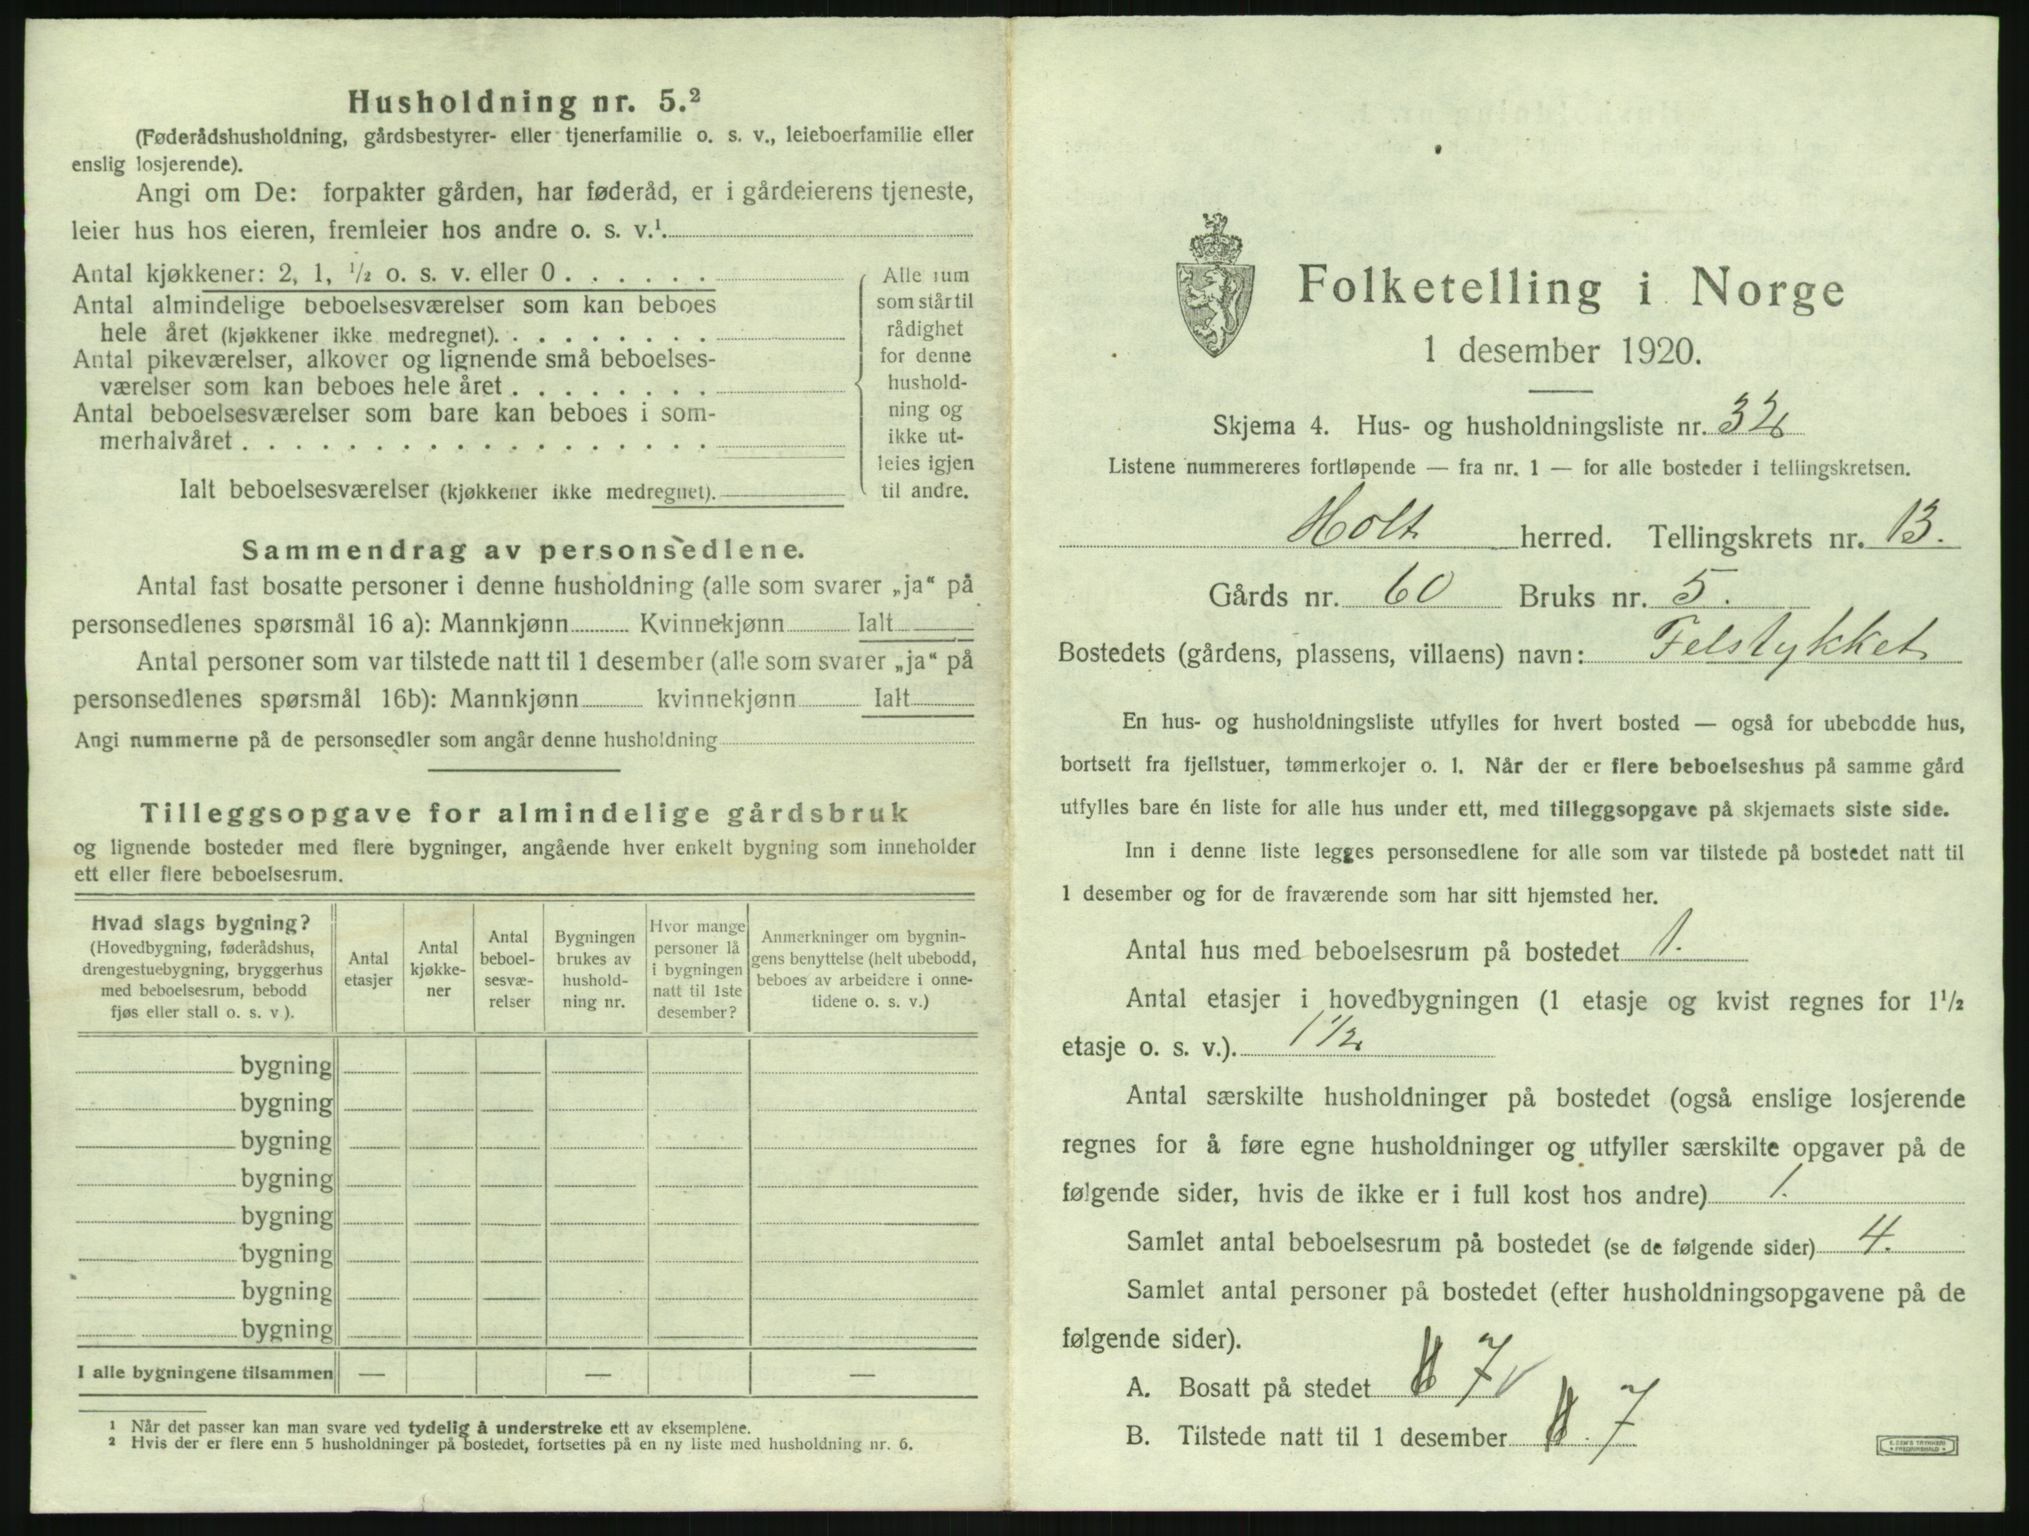 Husholdning nr. 5.²
(Føderådshusholdning, gårdsbestyrer- eller tjenerfamilie o. s. v., leieboerfamilie eller
enslig losjerende).
Angi om De: forpakter gården, har føderåd, er i gårdeierens tjeneste,
leier hus hos eieren, fremleier hos andre o. s. v.¹
Antal kjøkkener: 2, 1, ½ o. s. v. eller 0 . . . . . .
Antal almindelige beboelsesværelser som kan beboes
hele året (kjøkkener ikke medregnet). . . . . . . . .
Antal pikeværelser, alkover og lignende små beboelses-
værelser som kan beboes hele året . . . . . . . .
Antal beboelsesværelser som bare kan beboes i som-
merhalvåret . . . . . . . . . . . . . . . . . .
Ialt beboelsesværelser (kjøkkener ikke medregnet).
Alle rum
som står til
rådighet
for denne
hushold-
ning og
ikke ut-
leies igjen
til andre.
Sammendrag av personsedlene.
Antal fast bosatte personer i denne husholdning (alle som svarer „ja“ på
personsedlenes spørsmål 16 a): Mannkjønn Kvinnekjønn Ialt
Antal personer som var tilstede natt til 1 desember (alle som svarer „ja“ på
personsedlenes spørsmål 16b): Mannkjønn kvinnekjønn Ialt
Angi nummerne på de personsedler som angår denne husholdning
Tilleggsopgave for almindelige gårdsbruk
og lignende bosteder med flere bygninger, angående hver enkelt bygning som inneholder
ett eller flere beboelsesrum.
Hvad slags bygning?
(Hovedbygning, føderådshus,
drengestuebygning, bryggerhus
med beboelsesrum, bebodd
fjøs eller stall o. s. v ).
Antal
etasjer
Antal
kjøkke-
ner
Antal
beboel-
sesvæ-
relser
Bygningen
brukes av
hushold-
ning nr.
Hvor mange
personer lå
i bygningen
natt til 1ste
desember?
Anmerkninger om bygnin-
gens benyttelse (helt ubebodd,
beboes av arbeidere i onne-
tidene o. s. v.)
bygning
bygning
bygning
bygning
bygning
bygning
bygning
bygning
I alle bygningene tilsammen — — —
¹ Når det passer kan man svare ved tydelig å understreke ett av eksemplene.
² Hvis der er flere enn 5 husholdninger på bostedet, fortsettes på en ny liste med husholdning nr. 6.
Folketelling i Norge
1 desember 1920.
Skjema 4. Hus- og husholdningsliste nr. 32
Listene nummereres fortløpende — fra nr. 1 — for alle bosteder i tellingskretsen.
Holt herred. Tellingskrets nr. 13.
Gårds nr. 60 Bruks nr. 5.
Bostedets (gårdens, plassens, villaens) navn: Felstykket
En hus- og husholdningsliste utfylles for hvert bosted — også for ubebodde hus,
bortsett fra fjellstuer, tømmerkojer o. l. Når der er flere beboelseshus på samme gård
utfylles bare én liste for alle hus under ett, med tilleggsopgave på skjemaets siste side.
Inn i denne liste legges personsedlene for alle som var tilstede på bostedet natt til
1 desember og for de fraværende som har sitt hjemsted her.
Antal hus med beboelsesrum på bostedet 1.
Antal etasjer i hovedbygningen (1 etasje og kvist regnes for 1½
etasje o. s. v.). 1 ½
Antal særskilte husholdninger på bostedet (også enslige losjerende
regnes for å føre egne husholdninger og utfyller særskilte opgaver på de
følgende sider, hvis de ikke er i full kost hos andre) 1.
Samlet antal beboelsesrum på bostedet (se de følgende sider) 4.
Samlet antal personer på bostedet (efter husholdningsopgavene på de
følgende sider).
A. Bosatt på stedet 7
B. Tilstede natt til 1 desember 7